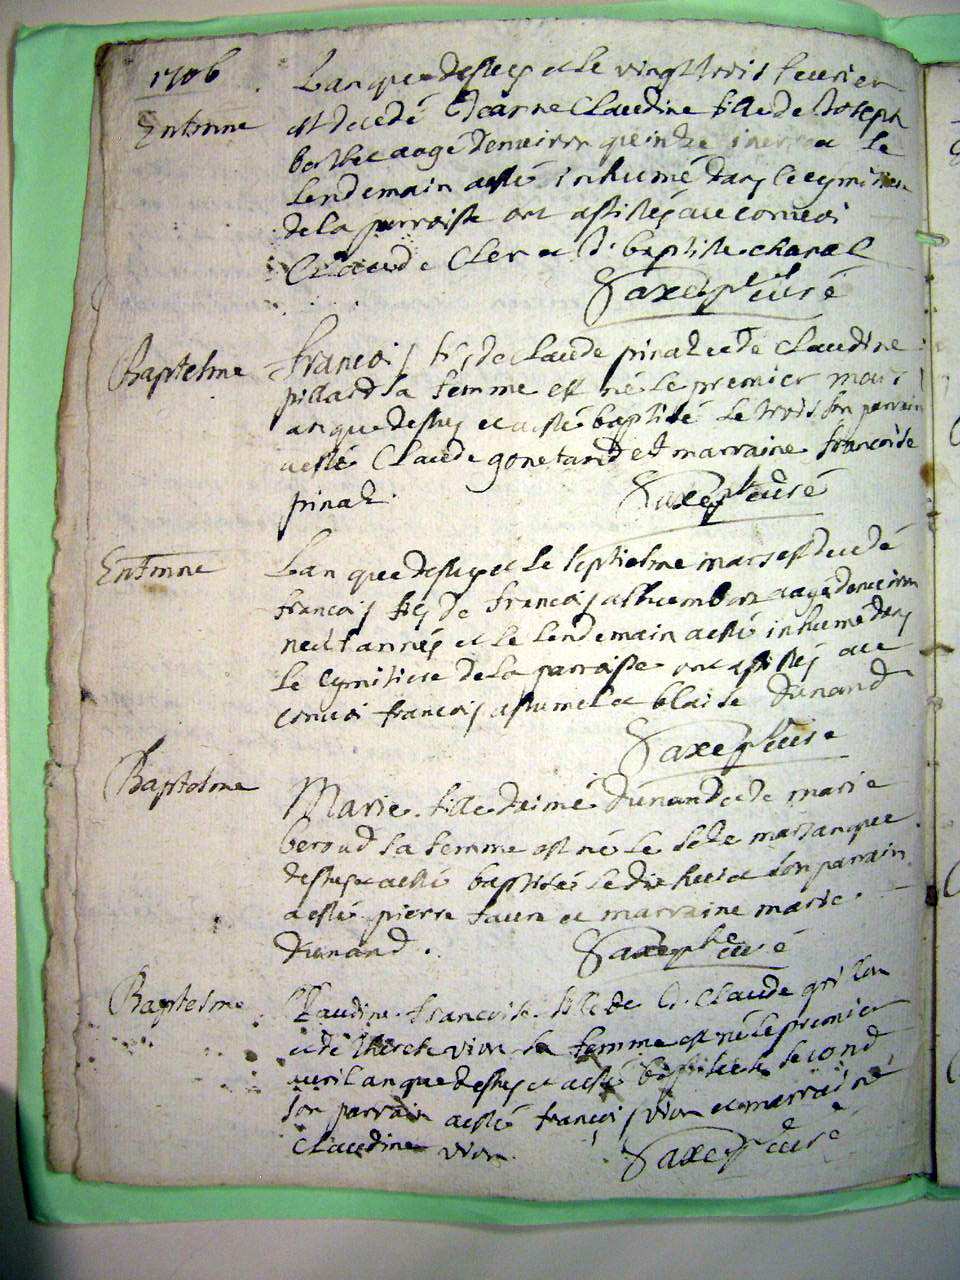 1706
Lan que dessus et le vingt trois feurier
Enterre
est decedé Jeanne Claudine fille de Joseph
aagé denuiron quinze et le
lendemain a esté inhumé dans le cymitiere
de la parroisse ont assistés au conuoi
Claude Cler et J. baptiste
Saxe ptre curé
Baptesme
francois fils de Claude pinat et de Claudine
pillard sa femme est né le premier mars
an que dessus et a esté baptisé le trois son parrain
a esté Claude gonetand et marraine francoise
pinat.
Saxe ptre curé
Enterre
Lan que dessus et le septiesme mars est decedé
francois fils de francois aagé denuiron
neuf années et le lendemain a esté inhumé dans
le cymitiere de la parroisse ont assistés au
conuoi francois et blaise dunand
Saxe ptre curé
Baptesme
Marie fille daimé dunand et de marie
beroud sa femme est né le seize mars an que
dessus et a esté baptisé le dix huit son parrain
a esté pierre faure et marraine marie
dunand.
Saxe ptre curé
Baptesme
Claudine francoise fille de J. Claude
et de therese vion sa femme est né le premier
auril an que dessus et a esté baptisée le second
son parrain a esté francois vion et marraine
Claudine vion.
Saxe ptre curé